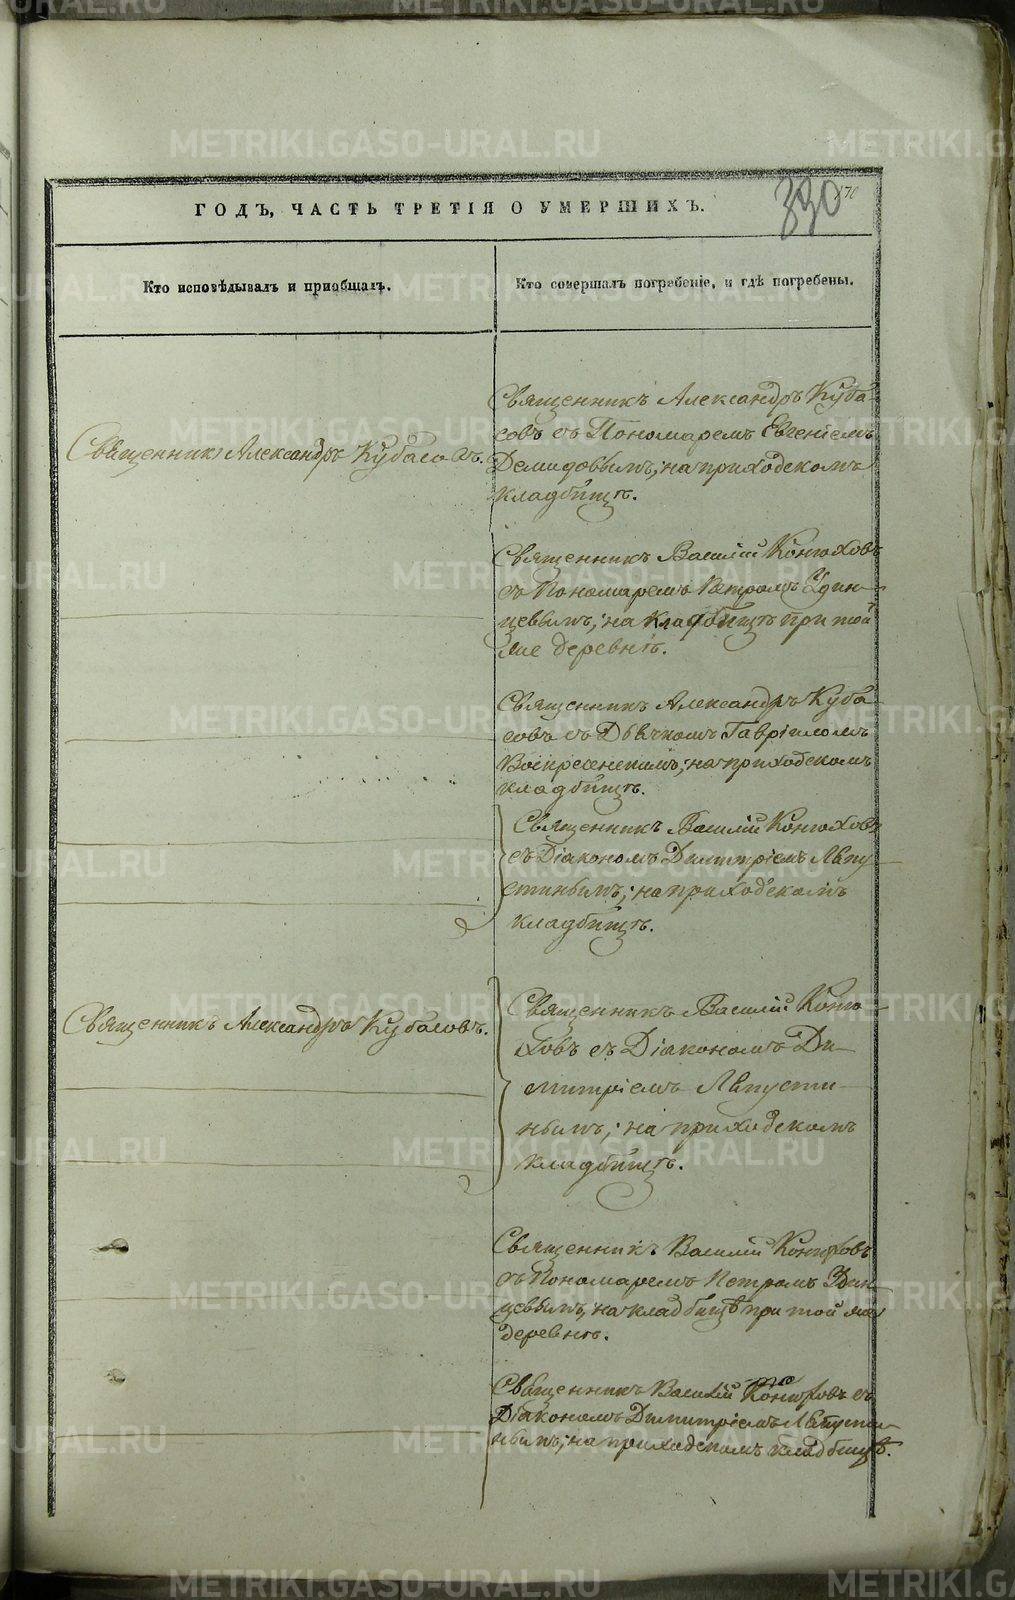 ГОДЪ, ЧАСТЬ ТРЕТІЯ О УМЕРШИХЪ.
330
Кто исповѣдывалъ и пріобщалъ.
Кто совершалъ погребеніе, и гдѣ погребены.
Священникъ Александръ Кубасовъ.
Священникъ Александръ Куба-
совъ съ Пономаремъ Евгеніемъ
Демидовымъ; на приходскомъ
кладбищѣ.
Священникъ Василій Конюховъ
съ Пономаремъ Петромъ Удин-
цевымъ; на кладбищѣ при той
же деревнѣ.
Священникъ Александръ Куба-
совъ съ Дьячкомъ Гавріиломъ
Воскресенскимъ; на приходскомъ
кладбищѣ.
Священникъ Василій Конюховъ
съ Діакономъ Димитріемъ Лѣпу-
стинымъ; на приходскомъ
кладбищѣ.
Священникъ Александръ Кубасовъ.
Священникъ Василій Коню-
ховъ съ Діакономъ Ди-
митріемъ Лѣпусти-
нымъ; на приходскомъ
кладбищѣ.
Священникъ Василій Конюховъ
съ Пономаремъ Петромъ
цевымъ, на кладбищѣ при той же
деревнѣ.
Священникъ Василій Конюховъ съ
Діакономъ Димитріемъ Лѣпусти-
нымъ; на приходскомъ кладбищѣ.
METRIKI.GASO-URAL.RU